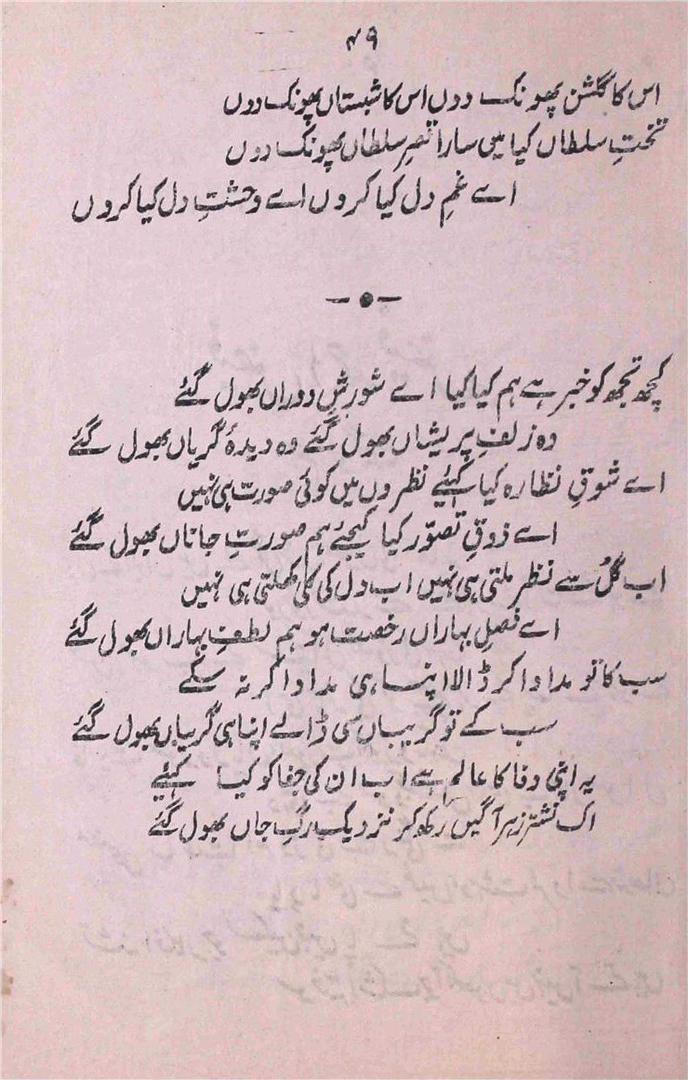 ۴۹
اس کا گلشن پھونک دوں اس کا شبستاں پھونک دوں
تختِ سلطاں کیا میں سارا قصرِ سلطاں پھونک دوں
اے غمِ دل کیا کروں اے وحشتِ دل کیا کروں
کچھ تجھ کو خبر ہے ہم کیا کیا اے شورشِ دوراں بھول گئے
وہ زلفِ پریشاں بھول گئے وہ دیدۂ گریاں بھول گئے
اے شوقِ نظارہ کیا کہیئے نظروں میں کوئی صورت ہی نہیں
اے ذوقِ تصوّر کیا کیجئے ہم صورتِ جاناں بھول گئے
اب گُل سے نظر ملتی ہی نہیں اب دل کی کلی کھلتی ہی نہیں
اے فصلِ بہاراں رخصت ہو ہم لطفِ بہاراں بھول گئے
سب کا تو مداوا کر ڈالا اپنا ہی مداوا کر نہ سکے
سب کے تو گریباں سی ڈالے اپنا ہی گریباں بھول گئے
یہ اپنی وفا کا عالم ہے اب ان کی جفا کو کیا کہیئے
اک نشترِ زہر آگیں رکھ کر نزدیک رگِ جاں بھول گئے